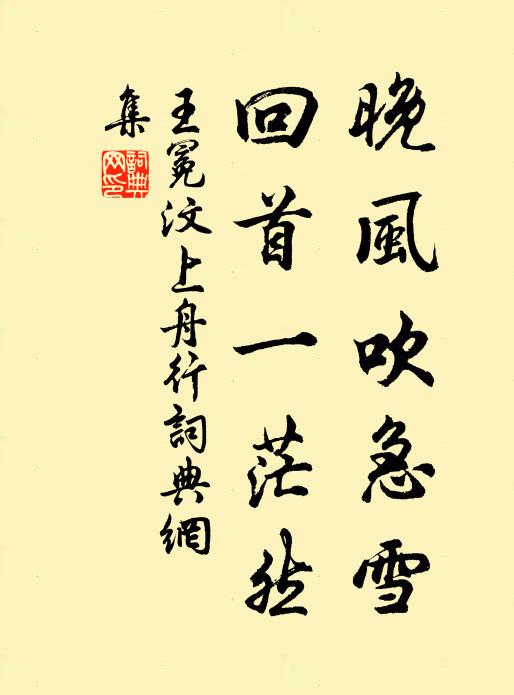 晚風吹急雪
回首一茫然
王冕汶上舟行詞典網
集
詞典網印